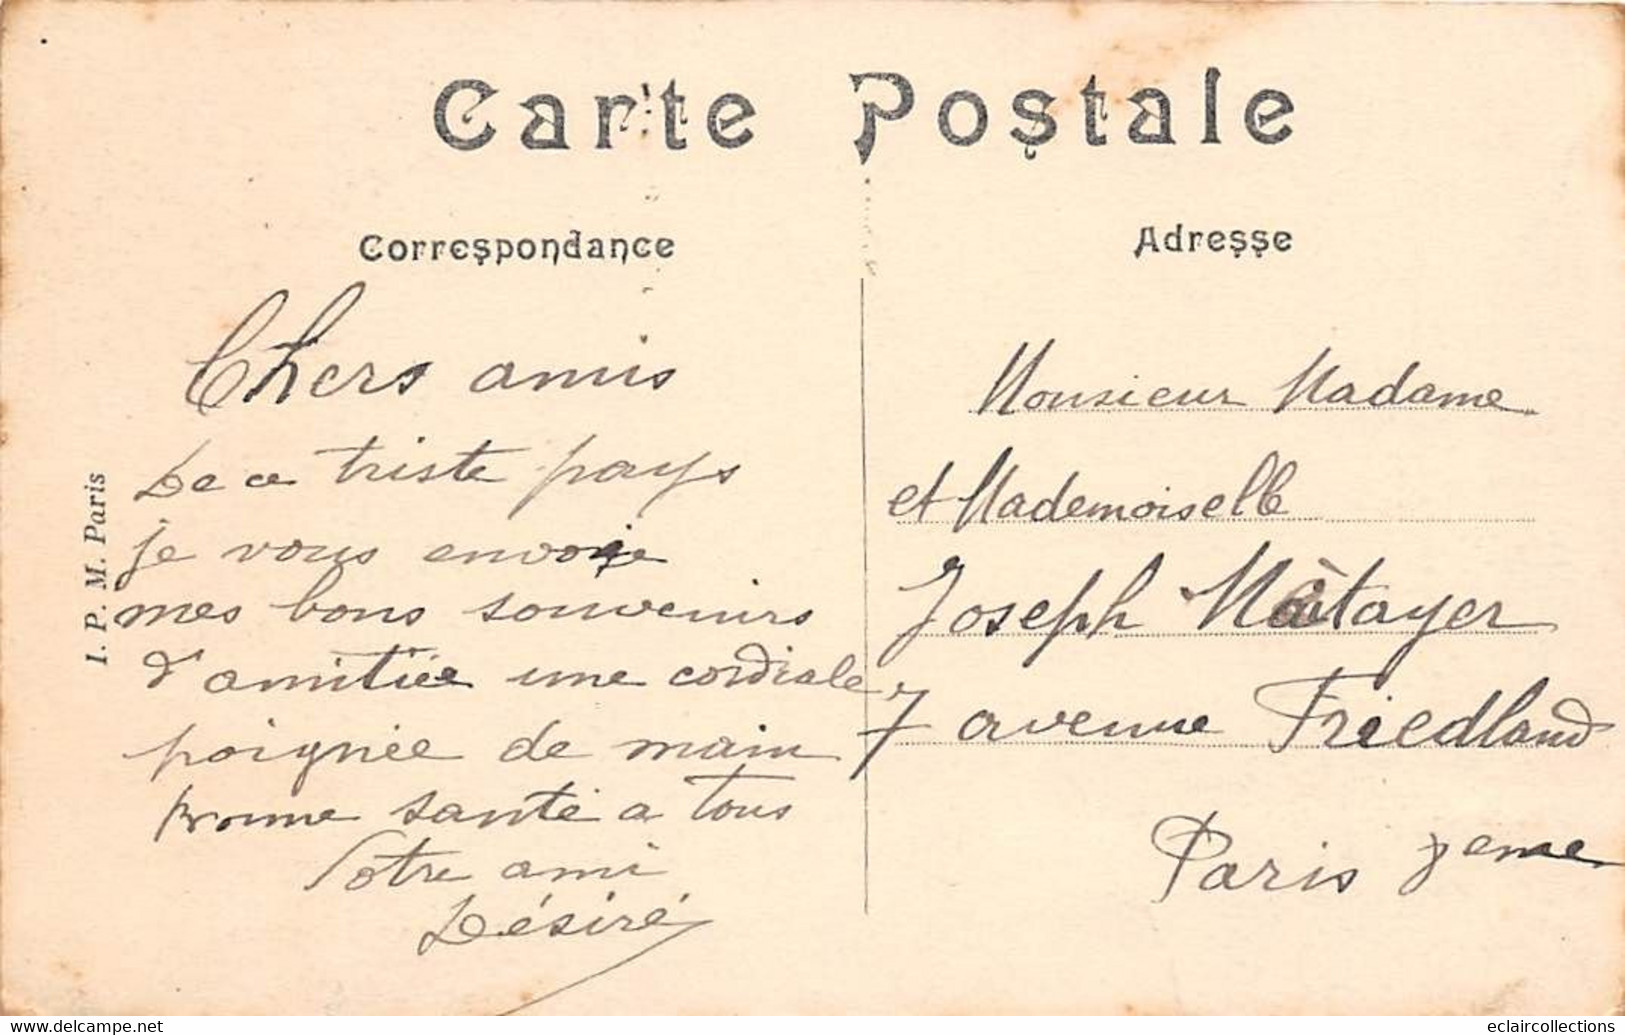 Carte Postale
Correspondance
Chers amis
De ce triste pays
je vous envoie
mes bons souvenirs
d'amitiée une cordiale
poignée de main
bonne santé a tous
Votre ami
Désiré
I. P. M. Paris
Adresse
Monsieur Madame
et Mademoiselle
Joseph
7 avenue Friedland
Paris 8eme
www.delcampe.net
eclaircollections